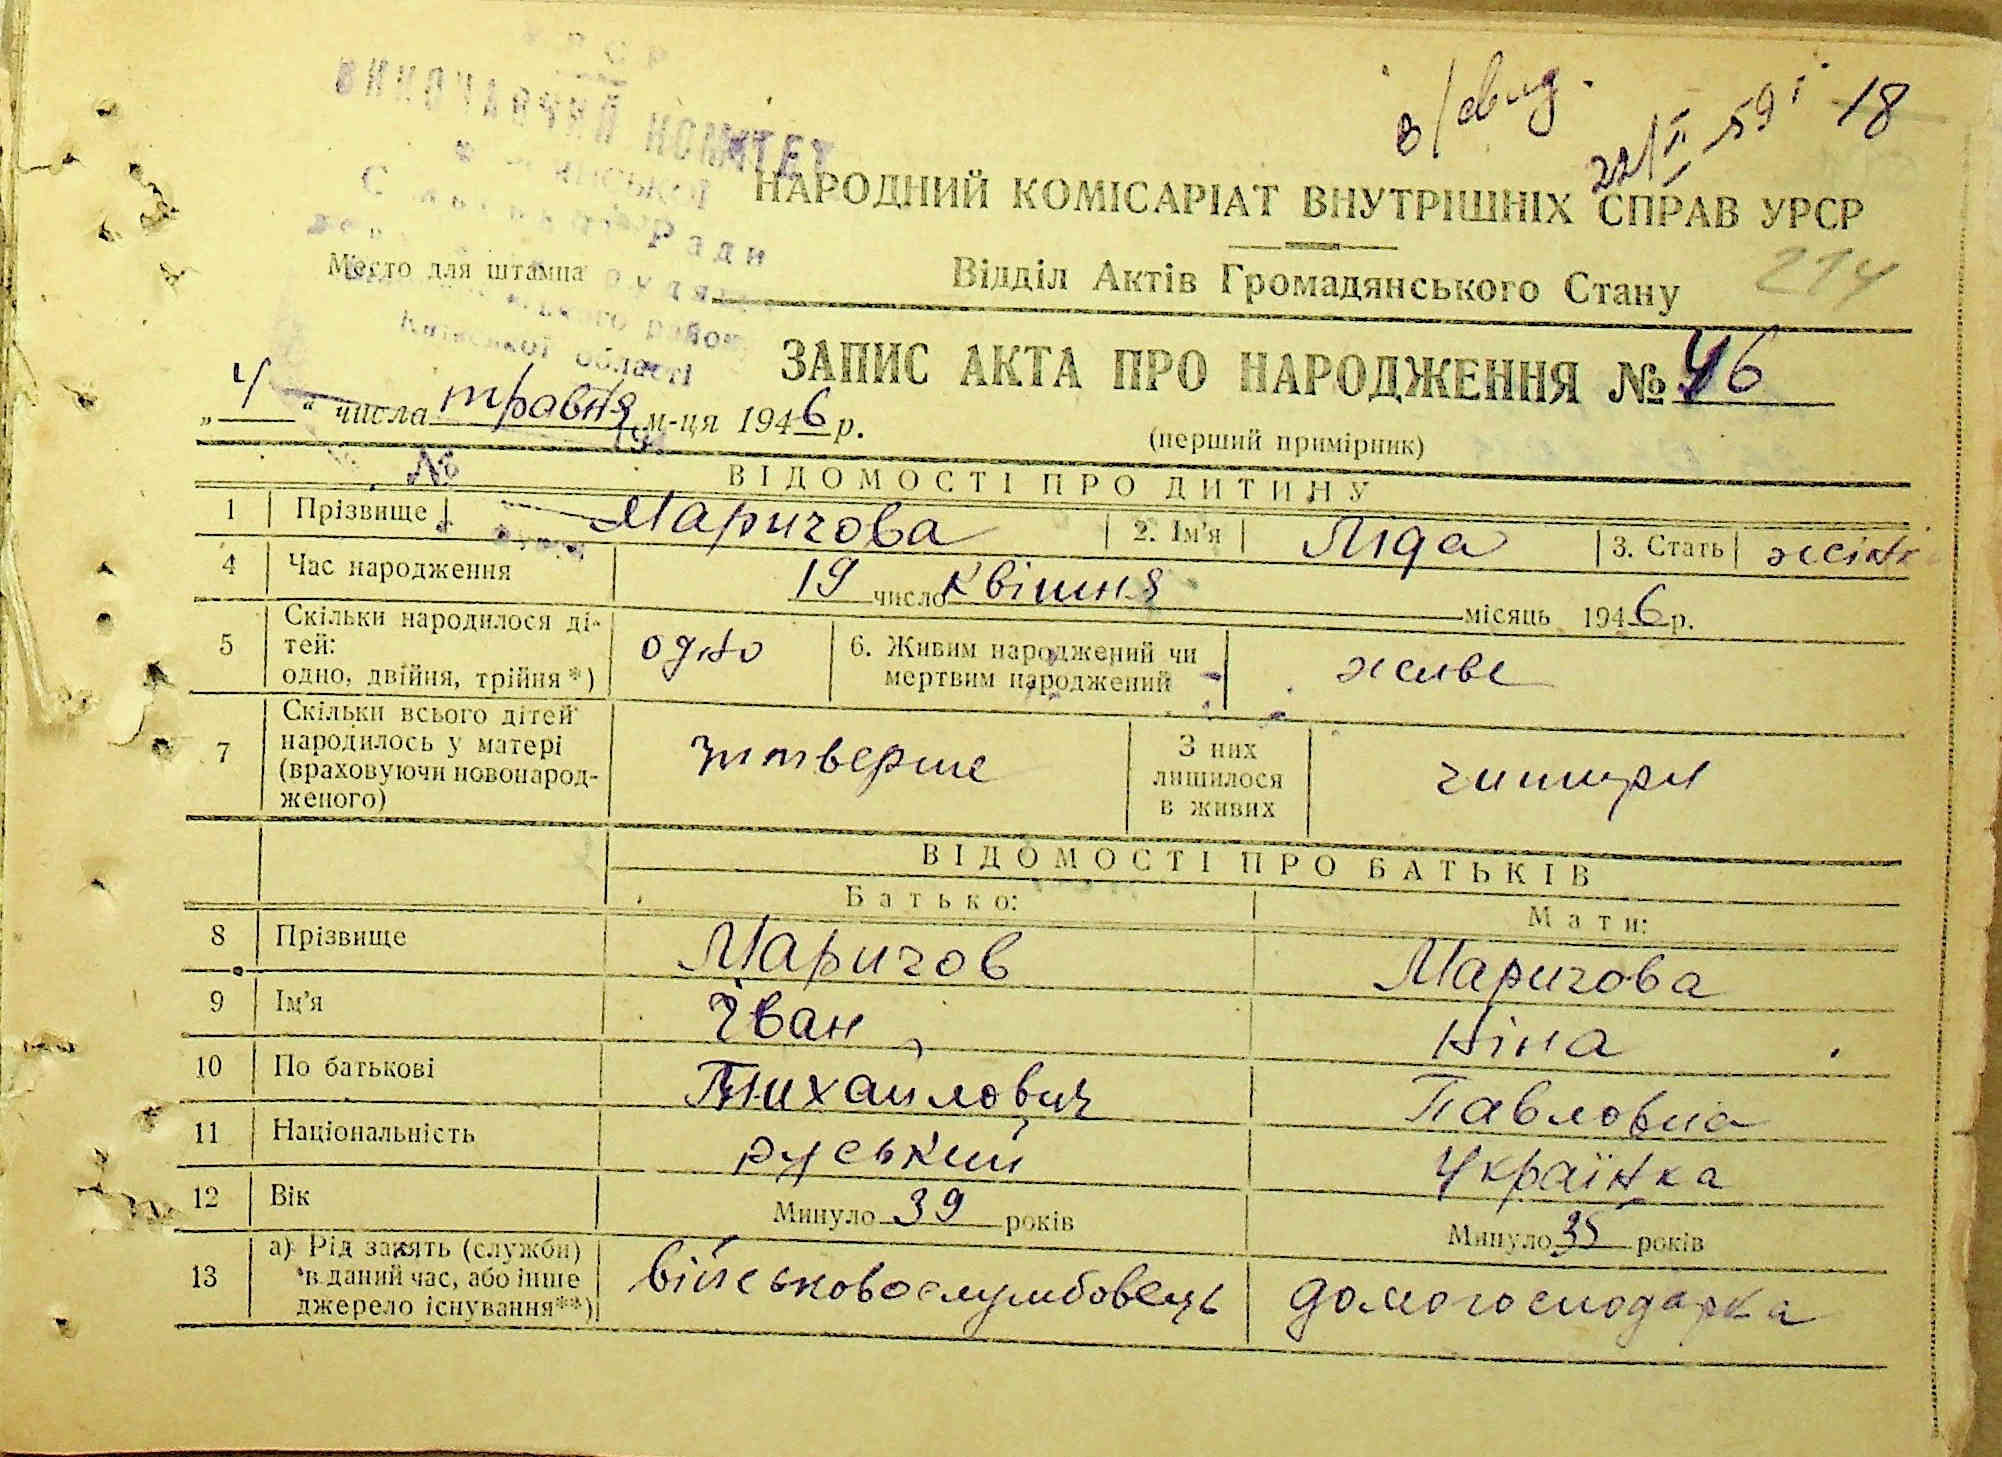 в/свид.
22/II-59 г 18
ВИКОНАВЧИЙ КОМІТЕТ
Ради
району
Київської області
№
НАРОДНИЙ КОМІСАРІАТ ВНУТРІШНІХ СПРАВ УРСР
Место для штампа
Відділ Актів Громадянського Стану
214
ЗАПИС АКТА ПРО НАРОДЖЕННЯ № 46
„ 4 “ числа травня м-ця 1946 р.
(перший примірник)
ВІДОМОСТІ ПРО ДИТИНУ
1 Прізвище Маричова 2. Ім'я Ліда 3. Стать жінк
4 Час народження 19 число квітня місяць 1946 р.
5 Скільки народилося ді-
тей:
одно, двійня, трійня *) одно 6. Живим народжений чи
мертвим народжений живе
7 Скільки всього дітей
народилось у матері
(враховуючи новонарод-
женого) читверте З них
лишилося
в живих читири
ВІДОМОСТІ ПРО БАТЬКІВ
Батько: Мати:
8 Прізвище Маричов Маричова
9 Ім'я Іван Ніна
10 По батькові Михаилович Павловна
11 Національність руський Українка
12 Вік Минуло 39 років Минуло 35 років
13 а) Рід занять (служби)
в даний час, або інше
джерело існування**) військовослумбовець домогосподарка